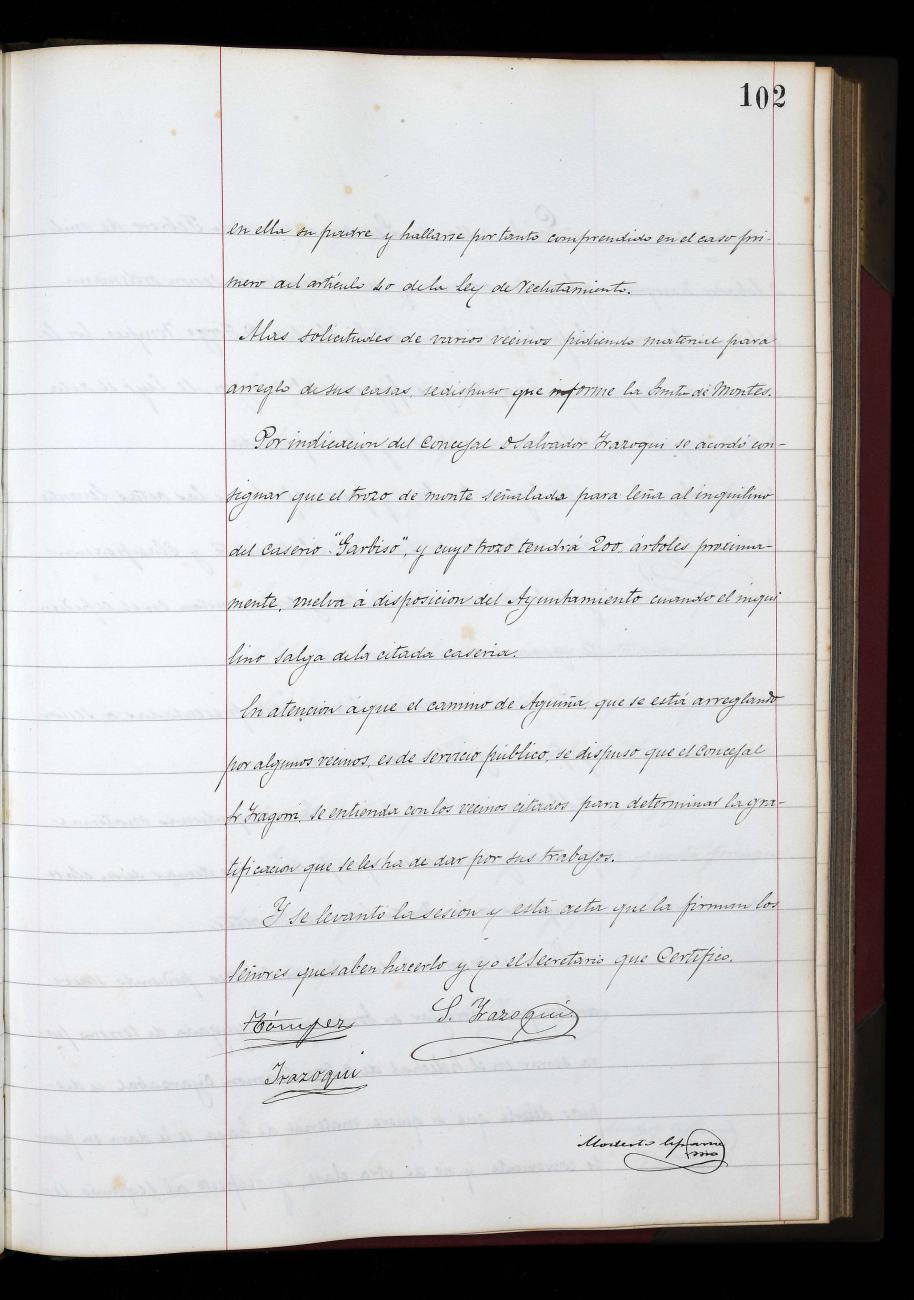 102
en ella su padre y hallarse por tanto comprendido en el caso pri-
mero del artículo 40 de la ley de Reclutamiento.
A las solicitudes de varios vecinos pidiendo material para
arreglo de sus casas, se dispuso que informe la Junta de Montes.
Por indicacion del Concejal D Salvador Irazoqui se acordó con-
signar que el trozo de monte señalada para leña al inquilino
del caserio "Garbiso", y cuyo trozo tendrá 200 árboles proxima-
mente, vuelva á disposicion del Ayuntamiento cuando el inqui
lino salga de la citada caseria.
En atencion a que el camino de Aguiña, que se está arreglando
por algunos vecinos, es de servicio público, se dispuso que el Concejal
Sr Iragorri, se entienda con los vecinos citados para determinar la gra-
tificacion que se les ha de dar por sus trabajos.
Y se levantó la sesion y está acta que la firman los
señores que saben hacerlo y yo el Secretario que Certifico.
S. Irazoqui
Irazoqui
Modesto